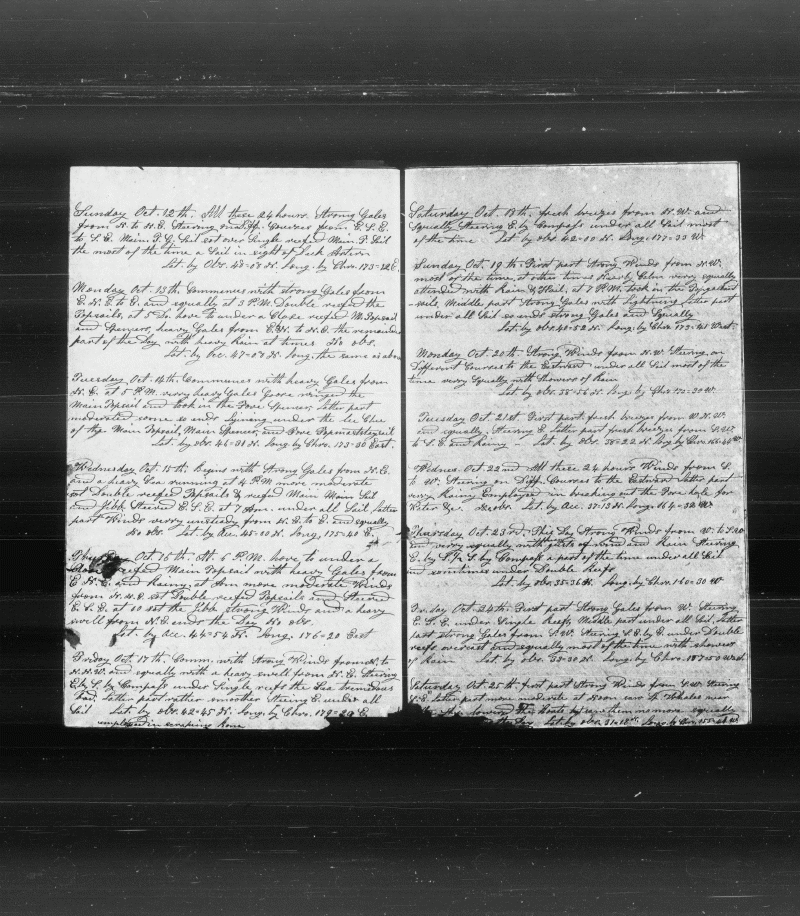 Sunday Oct. 12th. All these 24 hours Strong Gales
from N. to N.E. Steering on Diff. Courses from E.S.E.
to S.E. Main T. G. Sail set over Single reefed Main T. Sail
the most of the time a Sail in sight of Lark Astern
Lat. by Obs. 48-08 N. Long. by Chro. 173-22 E.
Monday Oct. 13th Commences with strong Gales from
E.N.E. to E. and squally at 3 P.M. Double reefed the
Topsails, at 5 Do. hove to under a Close reefed M. Topsail
and Spencers, heavy Gales from E.N. to N.E. the remainder
part of the Day with heavy Rain at times No obs.
Lat. by Acc. 47-08 N. Long. the same as above
Tuesday Oct. 14th. Commences with heavy Gales from
N.E. at 5 P.M. verry heavy Gales Goose winged the
Main Topsail and took in the Fore Spencer, latter part
moderated some, so ends Lying under the lee Clue
of the Main Topsail, Main Spencer and Fore Topmaststaysail
Lat. by obs. 46-31 N. Long. by Chro. 173-30 East.
Wednesday Oct. 15th Begins with Strong Gales from N.E.
and a heavy Sea running at 4 P.M. more moderate
set Double reefed Topsails & reefed Main Main Sail
and Jibb Steered E.S.E. at 7 Am. under all Sail, latter
part Winds verry unsteady from N.E. to E. and squally
No obs. Lat. by Acc. 45-10 N. Long. 175-40 E.
Oct 16th At 6 P.M. hove to under a
reefed Main Topsail with heavy Gales from
E.N.E. and Rainy, at Am more moderate Winds
from N.N.E. set Double reefed Topsails and Steered
E.S.E. at 10 set the Jibb strong Winds and a heavy
swell from N.E. ends the Day No obs.
Lat. by Acc. 44-54 N. Long. 176-20 East
Friday Oct. 17th. Comm. with Strong Winds from N. to
N.N.W. and squally with a heavy swell from N.E. Steering
E. by S. by Compass under Single reefs the Sea tremendous
latter part rather smother Steering E. under all
Sail Lat. by Obs. 42-45 N. Long. by Chro. 179-29 E.
employed in scraping bone
Saturday Oct. 18th. fresh breezes from N.W. and
Squally Steering E. by Compass under all Sail most
of the time Lat. by obs. 42-00 N. Long. 177-33 W.
Sunday Oct. 19th. First part Strong Winds from N.W.
most of the time, at other times Nearly Calm verry squally
attended with Rain & Hail, at 7 P.M. took in the Topgallant
sails, Middle part Strong Gales with lightning, latter part
under all Sail so ends strong Gales and Squally
Lat. by obs. 40-52 N. Long. by Chro. 173-41 West.
Monday Oct. 20th. Strong Winds from N.W. Steering on
Different Courses to the Eastward under all Sail most of the
time verry Squally with Showers of Rain
Lat. by obs. 38-56 N. Long. by Chro. 170-30 W.
Tuesday Oct. 21st. First part fresh breezes from W.N.W.
and squally, Steering E. latter part fresh breezes from S.W.
to S.E. and Rainy Lat. by Obs. 38-22 N. Long by Chro. 166-40 W.
Wednes. Oct. 22nd All these 24 hours Winds from S.
to W. Steering on Diff. Courses to the Eastward latter part
verry Rainy Employed in breaking out the Fore hole for
Water &c. No obs. Lat. by Acc. 37-13 N. Long. 164-32 W.
Thursday Oct. 23rd. This Day Strong Winds from W. to S.W.
and verry squally with spirts of wind and Rain Steering
E. by S. ½ S. by Compass a part of the time under all Sail
and sometimes under Double Reefs
Lat. by obs. 35-36 N. Long. by Chro. 160-30 W.
Friday Oct. 24th. First part Strong Gales from W. Steering
E.S.E. under Single Reefs, Middle part under all Sail, latter
part strong Gales from S.W. Steering S.E. by E. under Double
reefs overcast and squally most of the time with showers
of Rain Lat by obs. 33-30 N. Long. by Chro. 157-53 West
Saturday Oct. 25th first part Strong Winds from S.W. Steering
S.E. latter part more moderate at Noon saw Sp. Whales near
the Ship lowered the Boats
Lat. by obs. 31-18 N. Long.